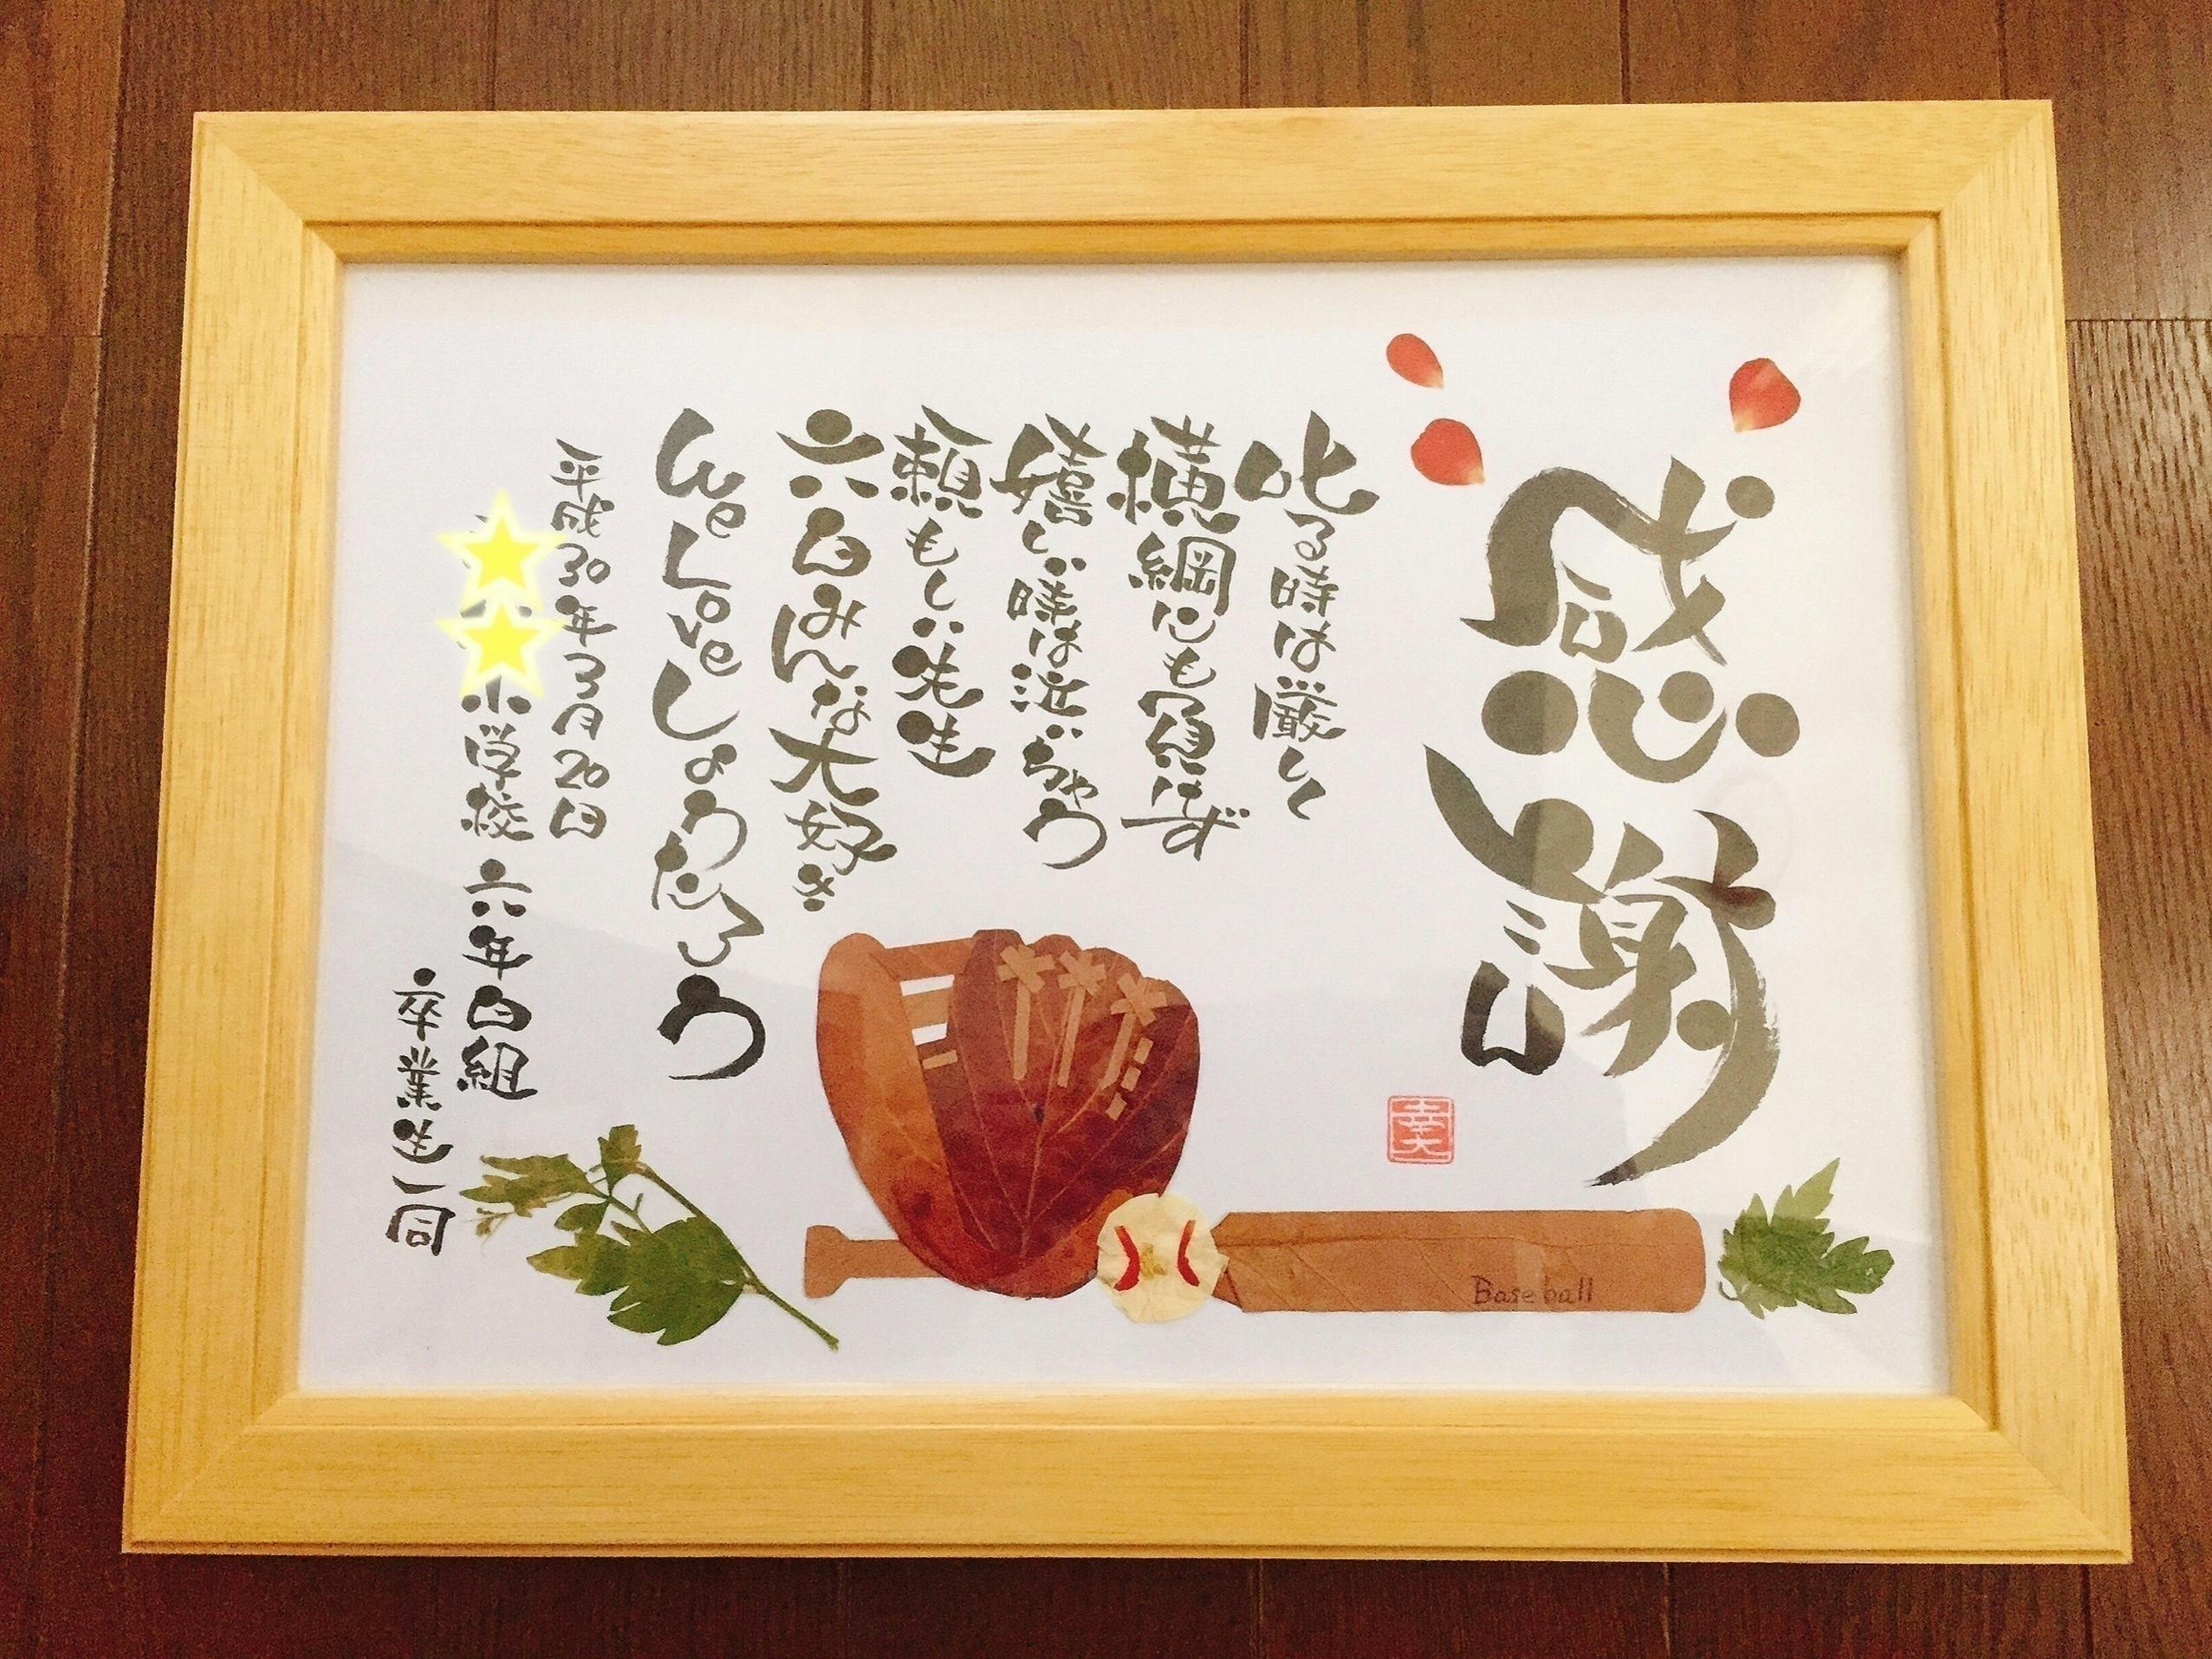 感謝
叱る時は厳しく
横綱にも負けず
嬉しい時は泣いちゃう
頼もしい先生
六白みんな大好き
We Love しょうたろう
平成30年3月20日
小学校 六年白組
卒業生一同
Baseball